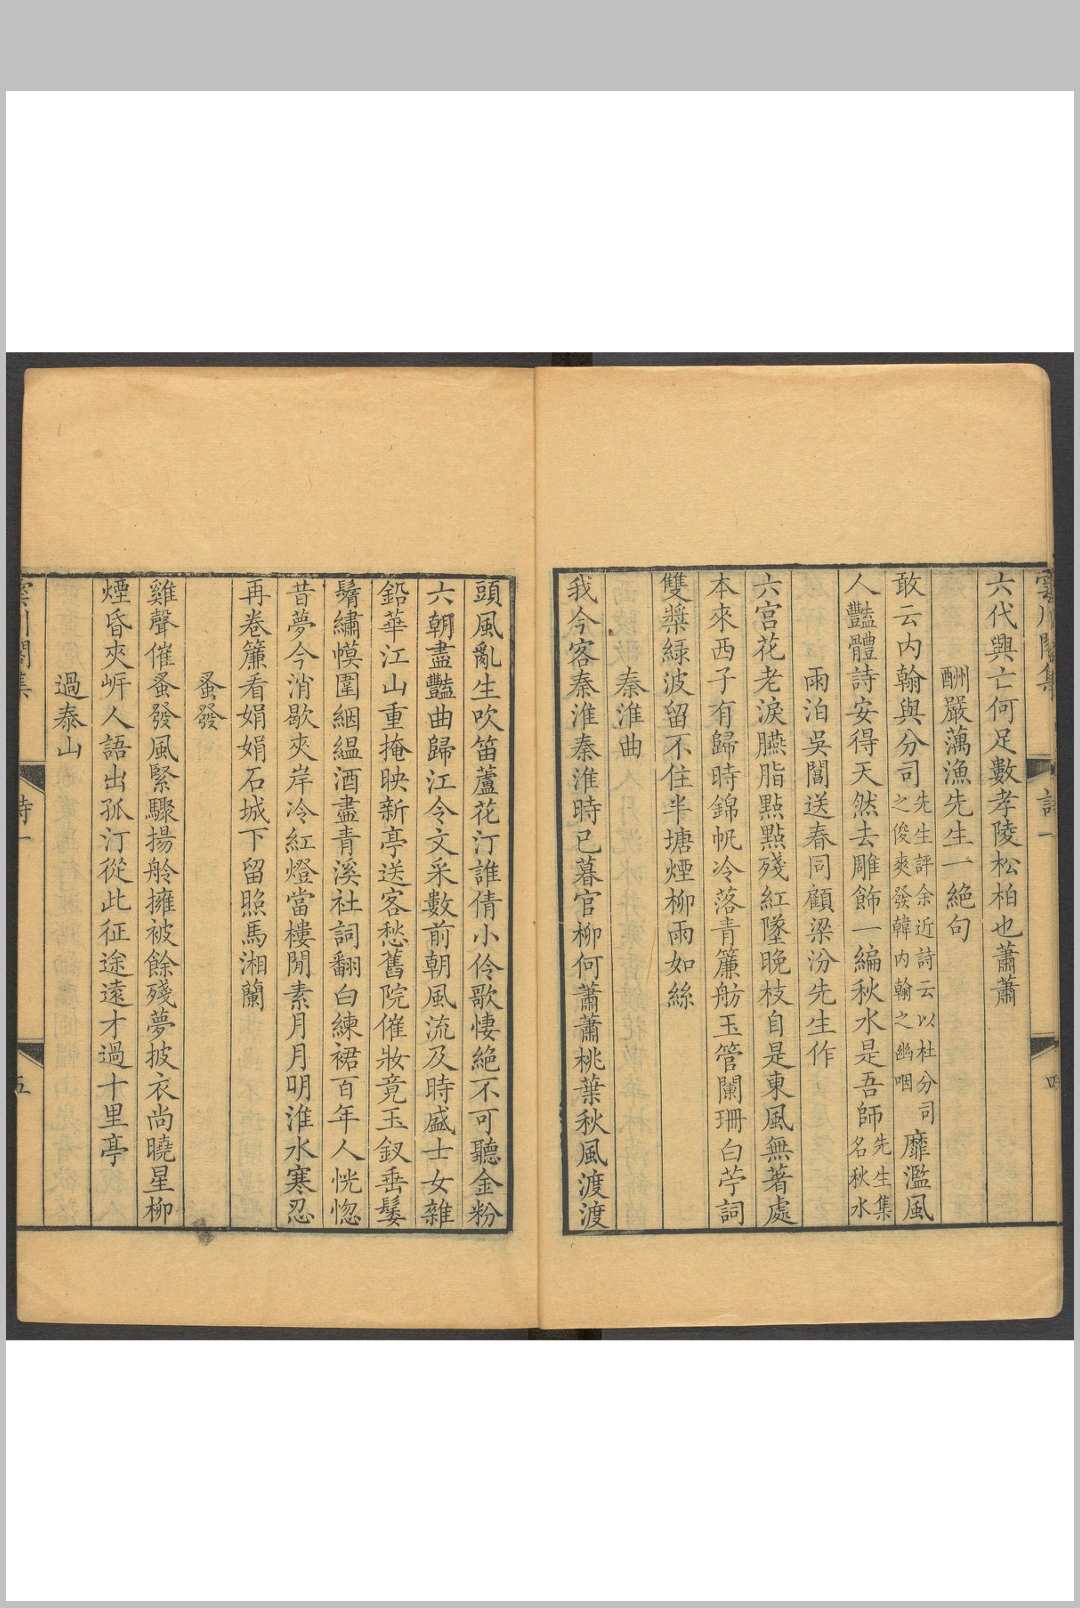 雲川閣集
詩一
四
六代興亡何足數孝陵松柏也蕭蕭
酬嚴藕漁先生一絕句
敢云内翰與分司先生評余近詩云以杜分司之俊爽發韓内翰之幽咽靡濫風
人豔體詩安得天然去雕飾一編秋水是吾師先生集名秋水
雨泊吳閶送春同顧梁汾先生作
六宮花老淚臙脂點點殘紅墜晚枝自是東風無著處
本來西子有歸時錦帆冷落青簾舫玉管闌珊白苧詞
雙槳綠波留不住半塘煙柳雨如絲
秦淮曲
我今客秦淮秦淮時已暮官柳何蕭蕭桃葉秋風渡渡
頭風亂生吹笛蘆花汀誰倩小伶歌悽絕不可聽金粉
六朝盡豔曲歸江令文采數前朝風流及時盛士女雜
鉛華江山重掩映新亭送客愁舊院催妝竟玉釵垂鬘
鬌繡幙圍絪縕酒盡青溪社詞翻白練裙百年人恍惚
昔夢今消歇夾岸冷紅燈當樓閒素月月明淮水寒忍
再卷簾看娟娟石城下留照馬湘蘭
蚤發
雞聲催蚤發風緊驟揚舲擁被餘殘夢披衣尚曉星柳
煙昏夾㟁人語出孤汀從此征途遠才過十里亭
過泰山
雲川閣集
詩一
五